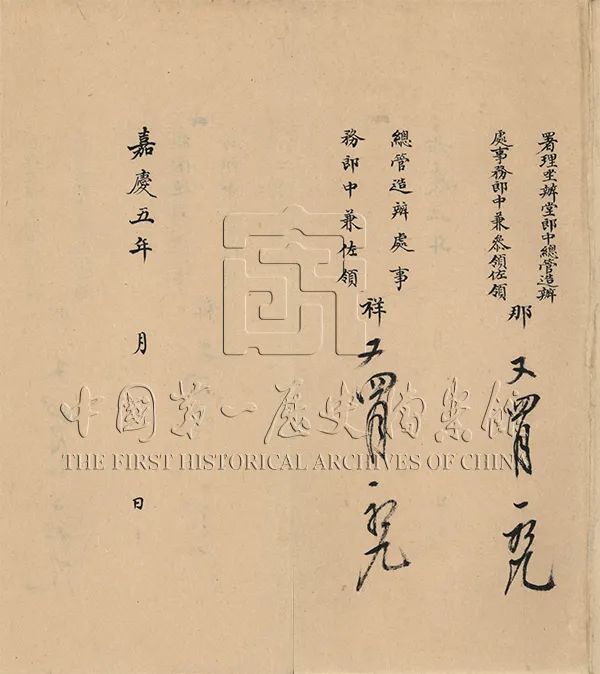 署理坐辦堂郎中總管造辦
處事務郎中兼叅領佐領
那 又四月
總管造辦處事
務郎中兼佐領
祥 又四月
嘉慶五年 月 日
中國第一歷史檔案館
THE FIRST HISTORICAL ARCHIVES OF CHINA